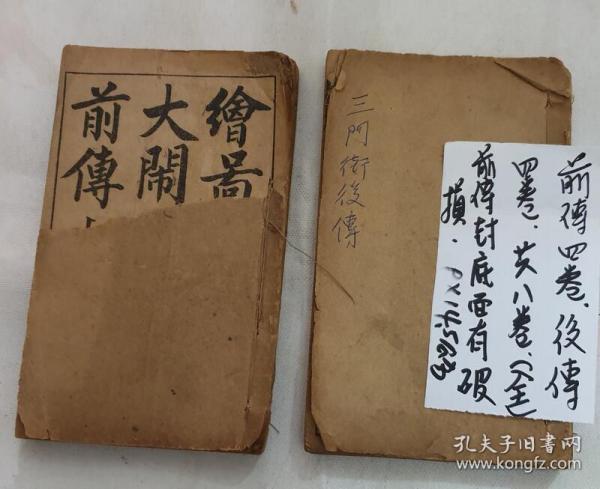 繪啚
大鬧
前傳
三門街後傳
前傳四卷、後傳
四卷、共八卷、(全)
前傳封底面有破
損.
孔夫子旧书网
www.kongfz.com